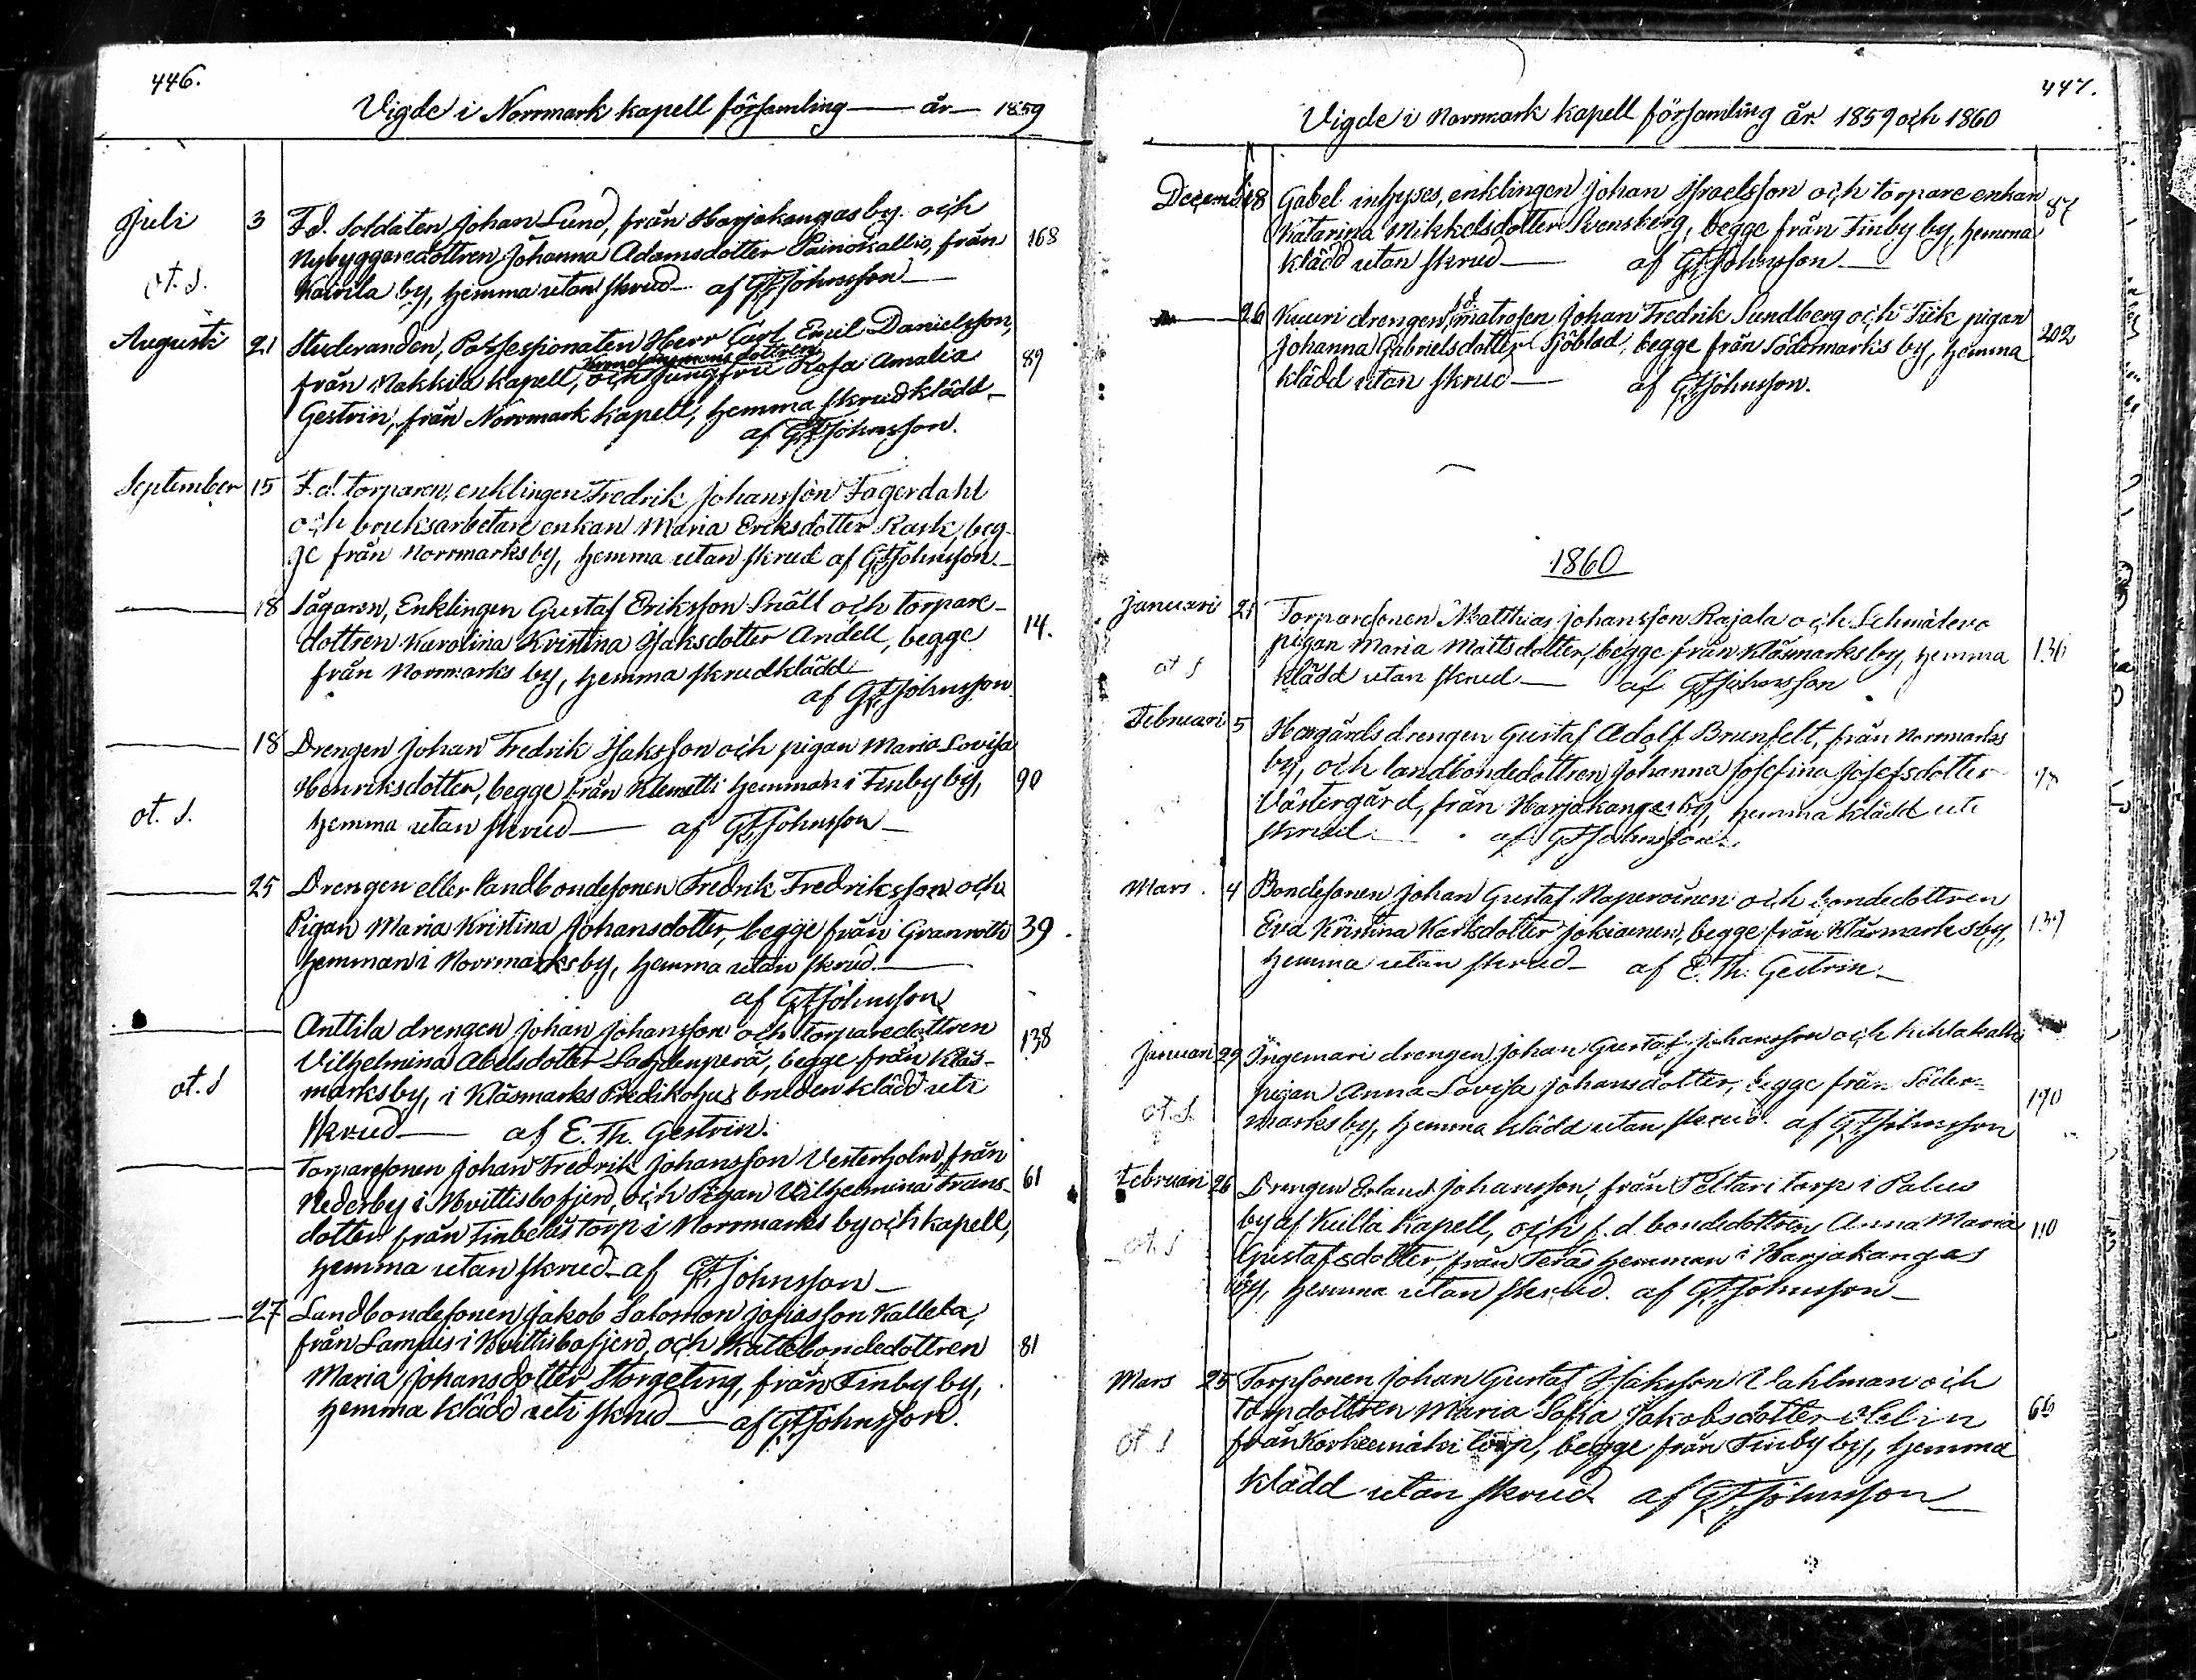 446.
Vigde i Norrmark kapell församling — år — 1859
Juli 3 F.d. Soldaten, Johan Lund, från Harjakangas by och
Nybyggaredottren Johanna Adamsdotter Painokallio, från 168
ot. S. Kairila by, hemma utan skrud — af GFJohnsson —
Augusti 21 Studeranden, Possessionaten Herr Carl Emil Danielsson,
kronolänsmansdottren
från Nakkila kapell, och Jungfru Rosa Amalia 89
Gestrin, från Norrmark kapell, hemma skrudklädd —
af GFJohnsson.
September 15 F.d. torparen, enklingen Fredrik Johansson Fagerdahl
och bruksarbetare enkan Maria Eriksdotter Rask, beg-
ge från Norrmarks by, hemma utan skrud af GFJohnsson —
— 18 Sågaren, Enklingen Gustaf Eriksson Snäll och torpare-
dottren Karolina Kristina Isaksdotter Andell, begge 14.
från Norrmarks by, hemma skrudklädd —
af GFJohnsson.
— 18 Drengen Johan Fredrik Isaksson och pigan Maria Lovisa
Henriksdotter, begge från Klemetti hemman i Finby by, 90
ot. S. hemma utan skrud — af GFJohnsson —
— 25 Drengen eller landbondesonen Fredrik Fredriksson och
Pigan Maria Kristina Johansdotter, begge från Granroth 39.
hemman i Norrmarks by, hemma utan skrud. —
af GFJohnsson
— Anttila drengen Johan Johansson och torparedottren 138
Vilhelmina Abelsdotter begge från Klås-
ot. S marks by, i Klåsmarks Predikohus bruden klädd uti
skrud — af E. Th. Gestrin.
— Torparesonen Johan Fredrik Johansson Vesterholm, från 61
Nederby i Hvittisbofjerd, och Pigan Vilhelmina Frans-
dotter från torp i Norrmarks by och kapell,
hemma utan skrud — af GFJohnsson —
— 27 Landbondesonen Jakob Salomon Josiasson Kalleba,
från Lampis i Hvittisbofjerd, och Kattebondedottren 81
Maria Johansdotter Storgeting, från Finby by,
hemma klädd uti skrud — af GFJohnsson.
447.
Vigde i Norrmark kapell församling år 1859 och 1860
December 18 Gabel inhyses, enklingen Johan Israelsson och torpare enkan 87
Katarina Mikkelsdotter Svensberg, begge från Finby by, hemma
klädd utan skrud — af GFJohnsson —
— 26 Kuuri drengen, f.d. matrosen Johan Fredrik Sundberg och Fiik pigan 202
Johanna Gabrielsdotter Sjöblad, begge från Södermarks by, hemma
klädd utan skrud — af GFJohnsson.
1860
Januari 21 Torparesonen Matthias Johansson Rajala och
pigan Maria Mattsdotter, begge från Klåsmarks by, hemma 136
ot S klädd utan skrud — af GFJohnsson
Februari 5 Herrgårds drengen Gustaf Adolf Brunfelt, från Norrmarks
by, och landbondedottren Johanna Josefina Josefsdotter
Västergård, från Harjakangas by, hemma klädd uti
skrud — af GFJohnsson.
Mars. 4 Bondesonen Johan Gustaf Naperoinen och bondedottren
Eva Kristina Karlsdotter Jokiainen, begge från Klåsmarks by,
hemma utan skrud — af E. Th. Gestrin —
Januari 29 Ingemari drengen Johan Gustaf Johansson och
pigan Anna Lovisa Johansdotter, begge från Söder- 190
ot. S. marks by, hemma klädd utan skrud. af GFJohnsson
Februari 26 Drengen Erland Johansson, från Peltari torp i Palus
by af Kulla kapell, och f.d. bondedottren Anna Maria 110
ot. S Gustafsdotter, från hemman i Harjakangas
by, hemma utan skrud. af GFJohnsson —
Mars 25 Torpsonen Johan Gustaf Isaksson Vahlman och
torpdottren Maria Sofia Jakobsdotter Helin 66
ot S från Korkeemäki torp, begge från Finby by, hemma
klädd utan skrud. af GFJohnsson —